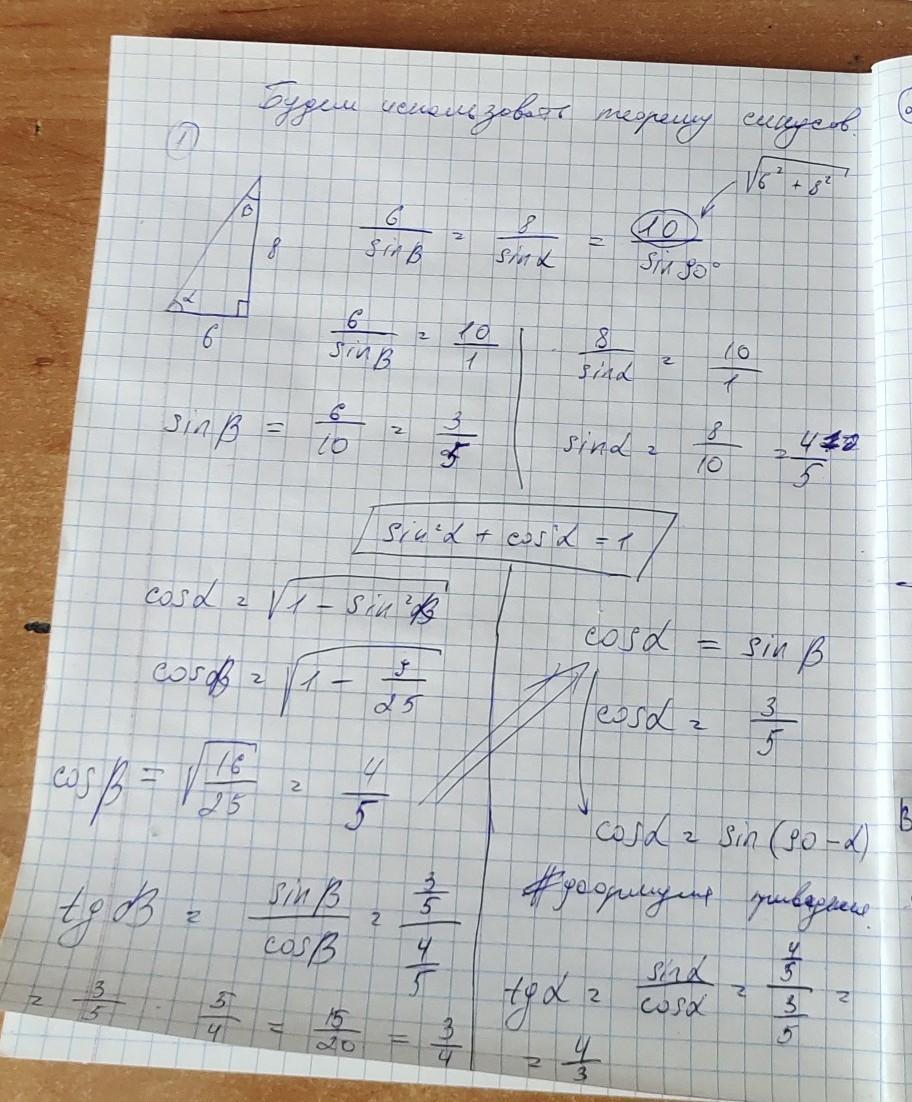 Будем использовать теорему синусов.
1
√6² + 8²
β 8
6/sinβ = 8/sinα = 10/sin90°
α
6
6/sinβ = 10/1
8/sinα = 10/1
sinβ = 6/10 = 3/5
sinα = 8/10 = 4/5
sin²α + cos²α = 1
cosα = √1 - sin²β
cosβ = √1 - 9/25
cosβ = √16/25 = 4/5
cosα = sinβ
cosα = 3/5
cosα = sin(90-α)
# формула приведения.
tgβ = sinβ/cosβ = 3/5 / 4/5
= 3/5 · 5/4 = 15/20 = 3/4
tgα = sinα/cosα = 4/5 / 3/5 =
= 4/3
В